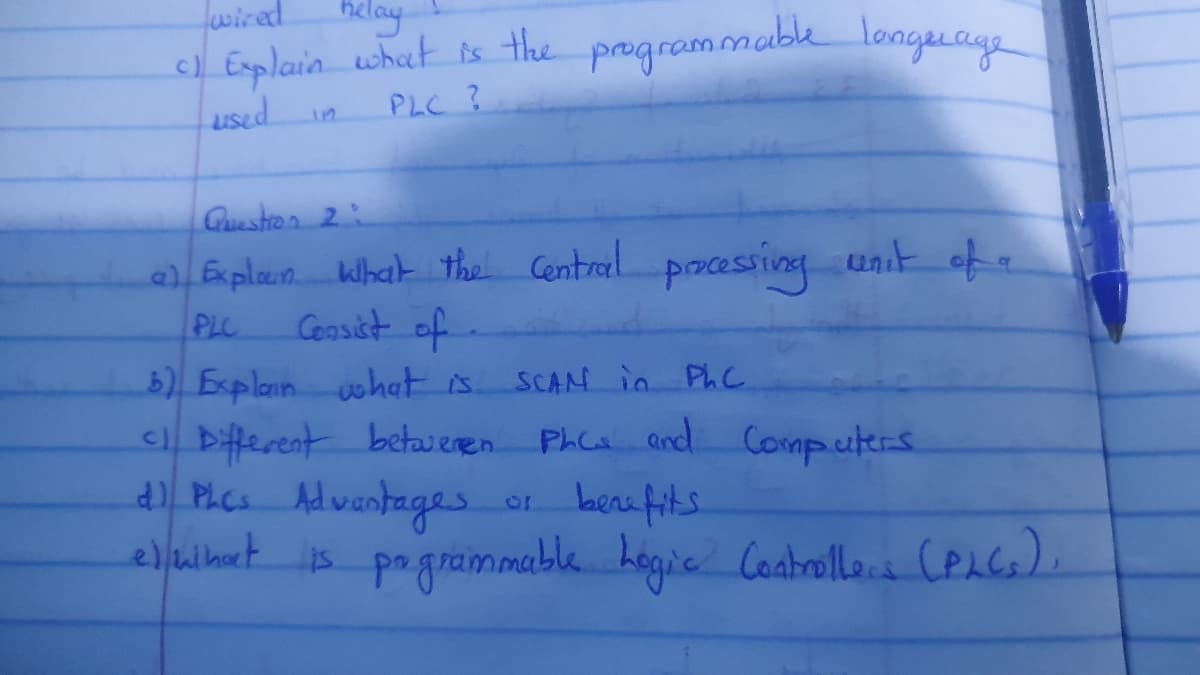 wired relay ?
c) Explain what is the programmable language
used in PLC ?
Question 2 :
a) Explain what the Central processing unit of a
PLC Consist of .
b) Explain what is SCAN in PLC
c) Different betweren PLCs and Computers
d) PLCs Advantages or benefits
e) what is programmable Logic Controllers (PLCs).